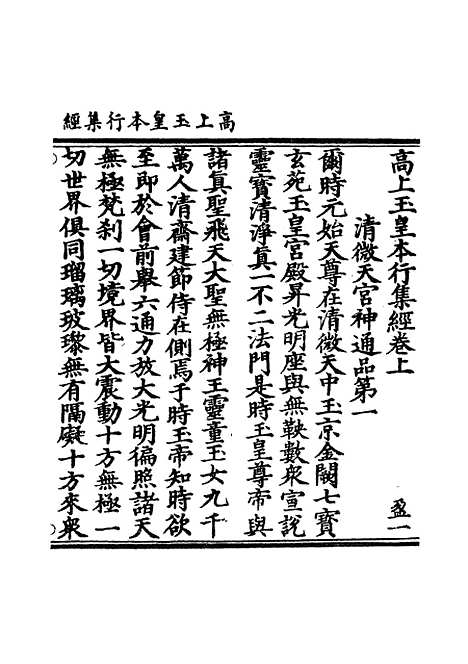 高上玉皇本行集經
高上玉皇本行集經卷上
盈一
清微天宮神通品第一
爾時元始天尊在清微天中玉京金闕七寶
玄苑玉皇宮殿昇光明座與無鞅數衆宣說
靈寶清淨真一不二法門是時玉皇尊帝與
諸真聖飛天大聖無極神王靈童玉女九千
萬人清齋建節侍在側焉于時玉帝知時欲
至即於會前舉六通力放大光明徧照諸天
無極梵刹一切境界皆大震動十方無極一
切世界俱同瑠璃玻瓈無有隔礙十方來衆